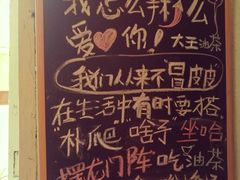 我怎么那么
爱你! 大王油茶
我们从来不冒皮皮
在生活中有时要搭
"扑爬" "啥子" 坐哈
摆龙门阵 吃油茶